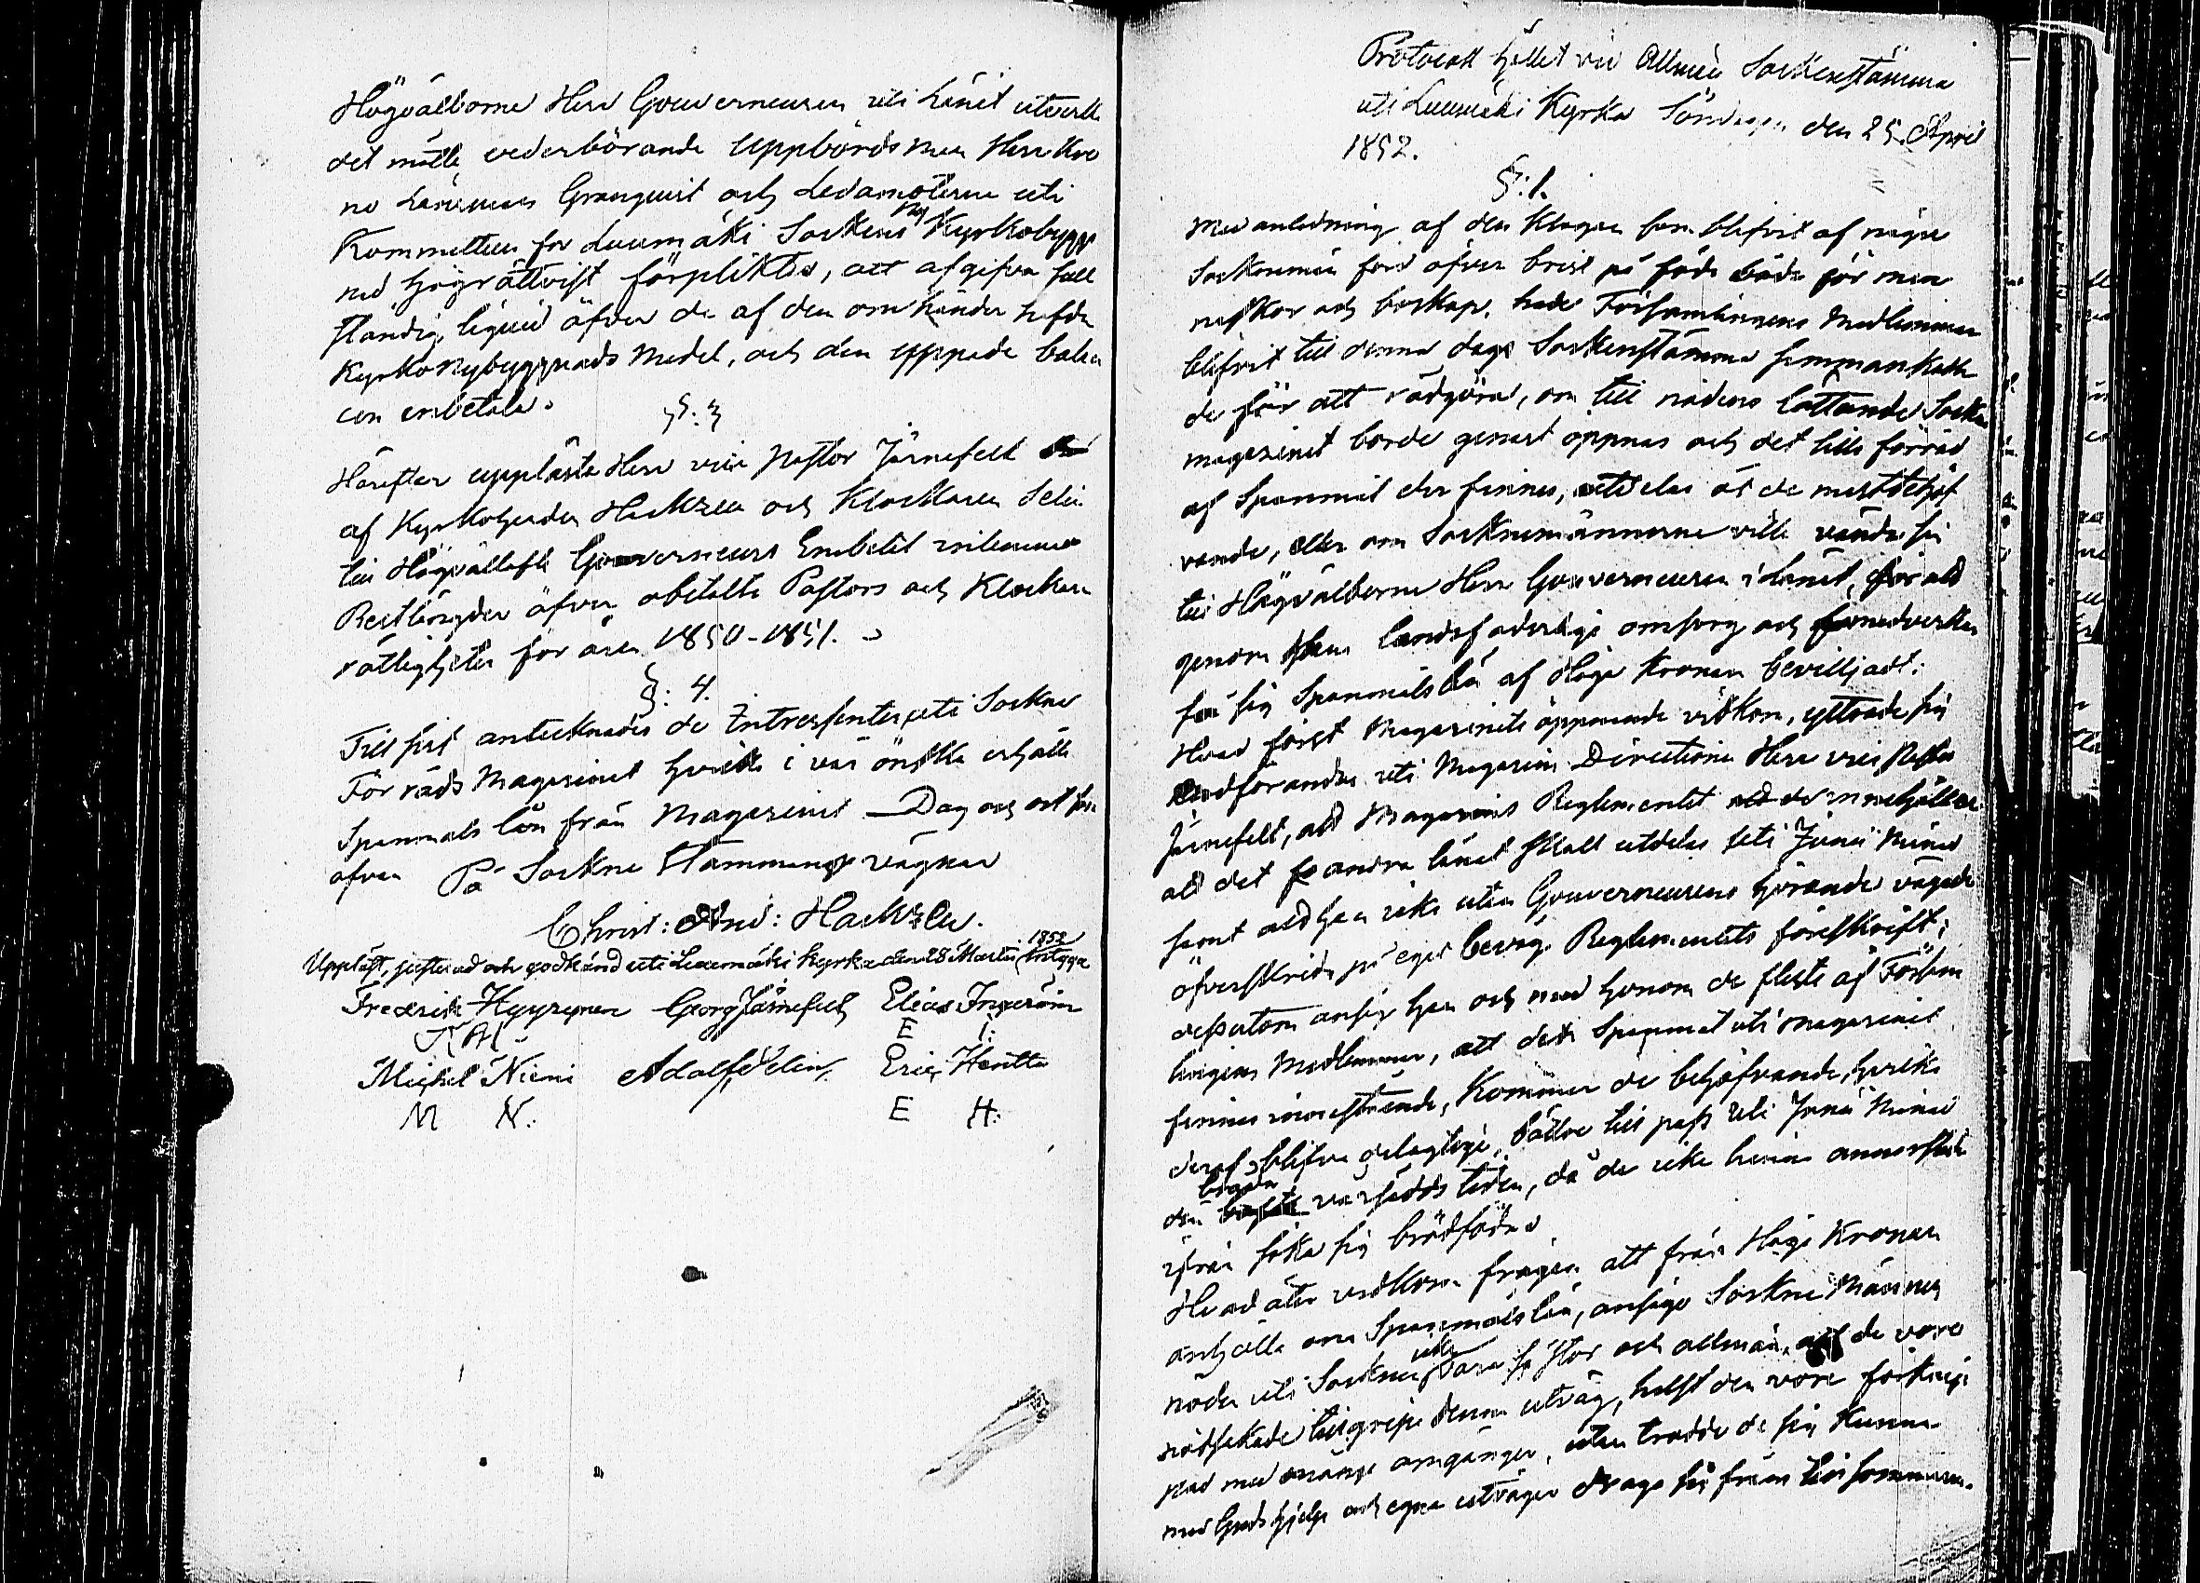 Högvälborne Herr Gouverneuren uti Länet utverka
det måtte vederbörande Uppbördsman Herr Kro
no Länsman Granquist och Ledamöterne uti
Kommitteen för Luumäki Sockens Ny Kyrkobygg
nad högrättvist förpliktas, att afgifva full
ständig liquid öfver de af dem om händer hafda
Kyrkonybyggnads Medel, och den uppade balan
cen inbetala.
§. 3
Härefter uppläste Herr vice Pastor Järnefelt
af Kyrkoherden Hackzell och Klockaren Selin
till Högvällofl. Gouverneurs Embetet
Restlängder öfver obetalte Pastors och Klockare
rättigheter för åren 1850-1851.
§. 4.
Till sist antecknades de Intressenter uti Sockne
Förråds Magasinet hvilka i vår önska erhålla
Spanmåls lån från Magasinet Dag och ort som
ofvan På Sockne Stämmans vägnar
Christ: And: Hackzell.
Uppläst, justerad och godkänd uti Luumäki Kyrka den 28 Martii 1852 intyga
Fredrik Hyyrynen Georg Järnefelt Elias Ingeröin
E I:
Michel Niemi Adolf Selin Eric Heutta
M N. E H:
Protocoll hållet vid Allmän Sockenstämma
uti Luumäki Kyrka Söndagen den 25. April
1852.
§. 1.
Med anledning af den klagan som blifvit af någre
Sockenmän förd öfver brist på föda både för men
niskor och boskap, hade Församlingens Medlemmar
blifvit till denna dags Sockenstämma sammankalla
de för att rådgöra, om till nödens lättande Socken
magasinet borde genast öppnas och det lilla förråd
af Spanmål der finnes, utdelas åt de mest behöf
vande, eller om Socknemännerne ville vända sig
till Högvälborne Herr Gouverneuren i Länet, för att
genom Hans landsfaderliga omsorg och medverkan
få sig Spanmålslån af Höga Kronan beviljadt.
Hvad först Magasinets öppnande vidkom, yttrade sig
Ordföranden uti Magasins Directionen Herr vice Pastor
Järnefelt, att Magasins Reglementet innehåller
att det andra lånet skall utdelas uti Junii Månad
samt att han icke utan Gouverneurens hörande vågade
öfverskrida på eget bevåg Reglementets föreskrift;
dessutom ansåg han och med honom de fleste af Försam
lingens Medlemmar, att det Spanmål uti Magasinet
finnes innestående, kommer de behöfvande, hvilka
deraf blifva delagtige, bättre till pass uti Junii Månad
den brådaste vårsådds tiden, då de icke hinna annorstädes
ifrån söka sig brödföda.
Hvad åter vidkom frågan att från Höga Kronan
anhålla om Spanmålslån, ansågo Sockne Männen
nöden uti Socknen icke vara så stor och allmän, att de voro
nödsakade tillgripa denna utväg, helst den vore förknip
pad med många omgångar, utan trodde de sig kunna
med Guds hjelp och egna utvägar draga sig fram till sommaren.